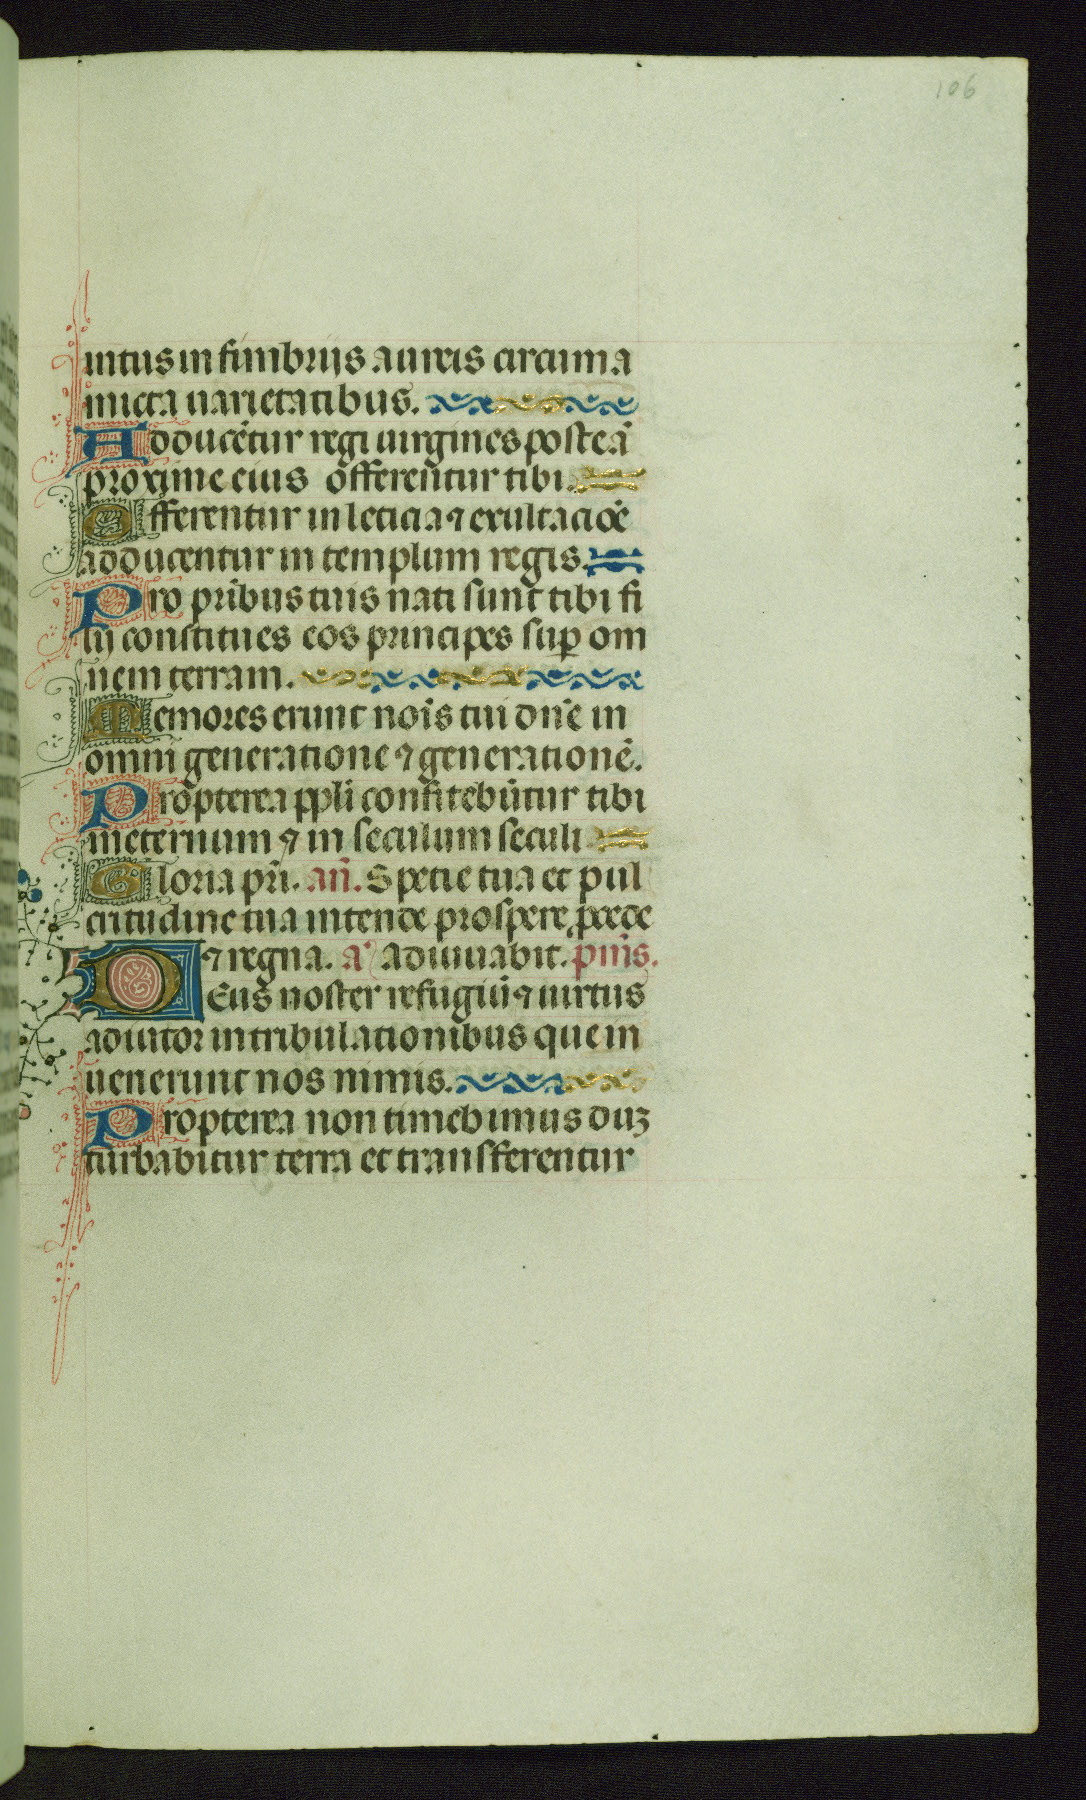 106
intus in fimbrijs aureis circuma
micta uarietatibus.
Adducētur regi uirgines post eā
proxime eius offerentur tibi.
Afferentur in leticia ⁊ exultaciōe
adducentur in templum regis.
Pro pr̄ibus tuis nati sunt tibi fi
lij constitues eos principes suꝑ om
nem terram.
Memores erunt nōis tui dn̄e in
omni generatione ⁊ generationē.
Propterea ppl̄i confitebūtur tibi
in eternum ⁊ in seculum seculi
Gloria pr̄i. añ. Specie tua et pul
critudine tua intende prospere ꝓcede
⁊ regna. a˙ Adiuuabit. ps̄mis.
Deus noster refugiū ⁊ uirtus
adiutor in tribulationibus que in
uenerunt nos nimis.
Propterea non timebimus duꝫ
turbabitur terra et transferentur